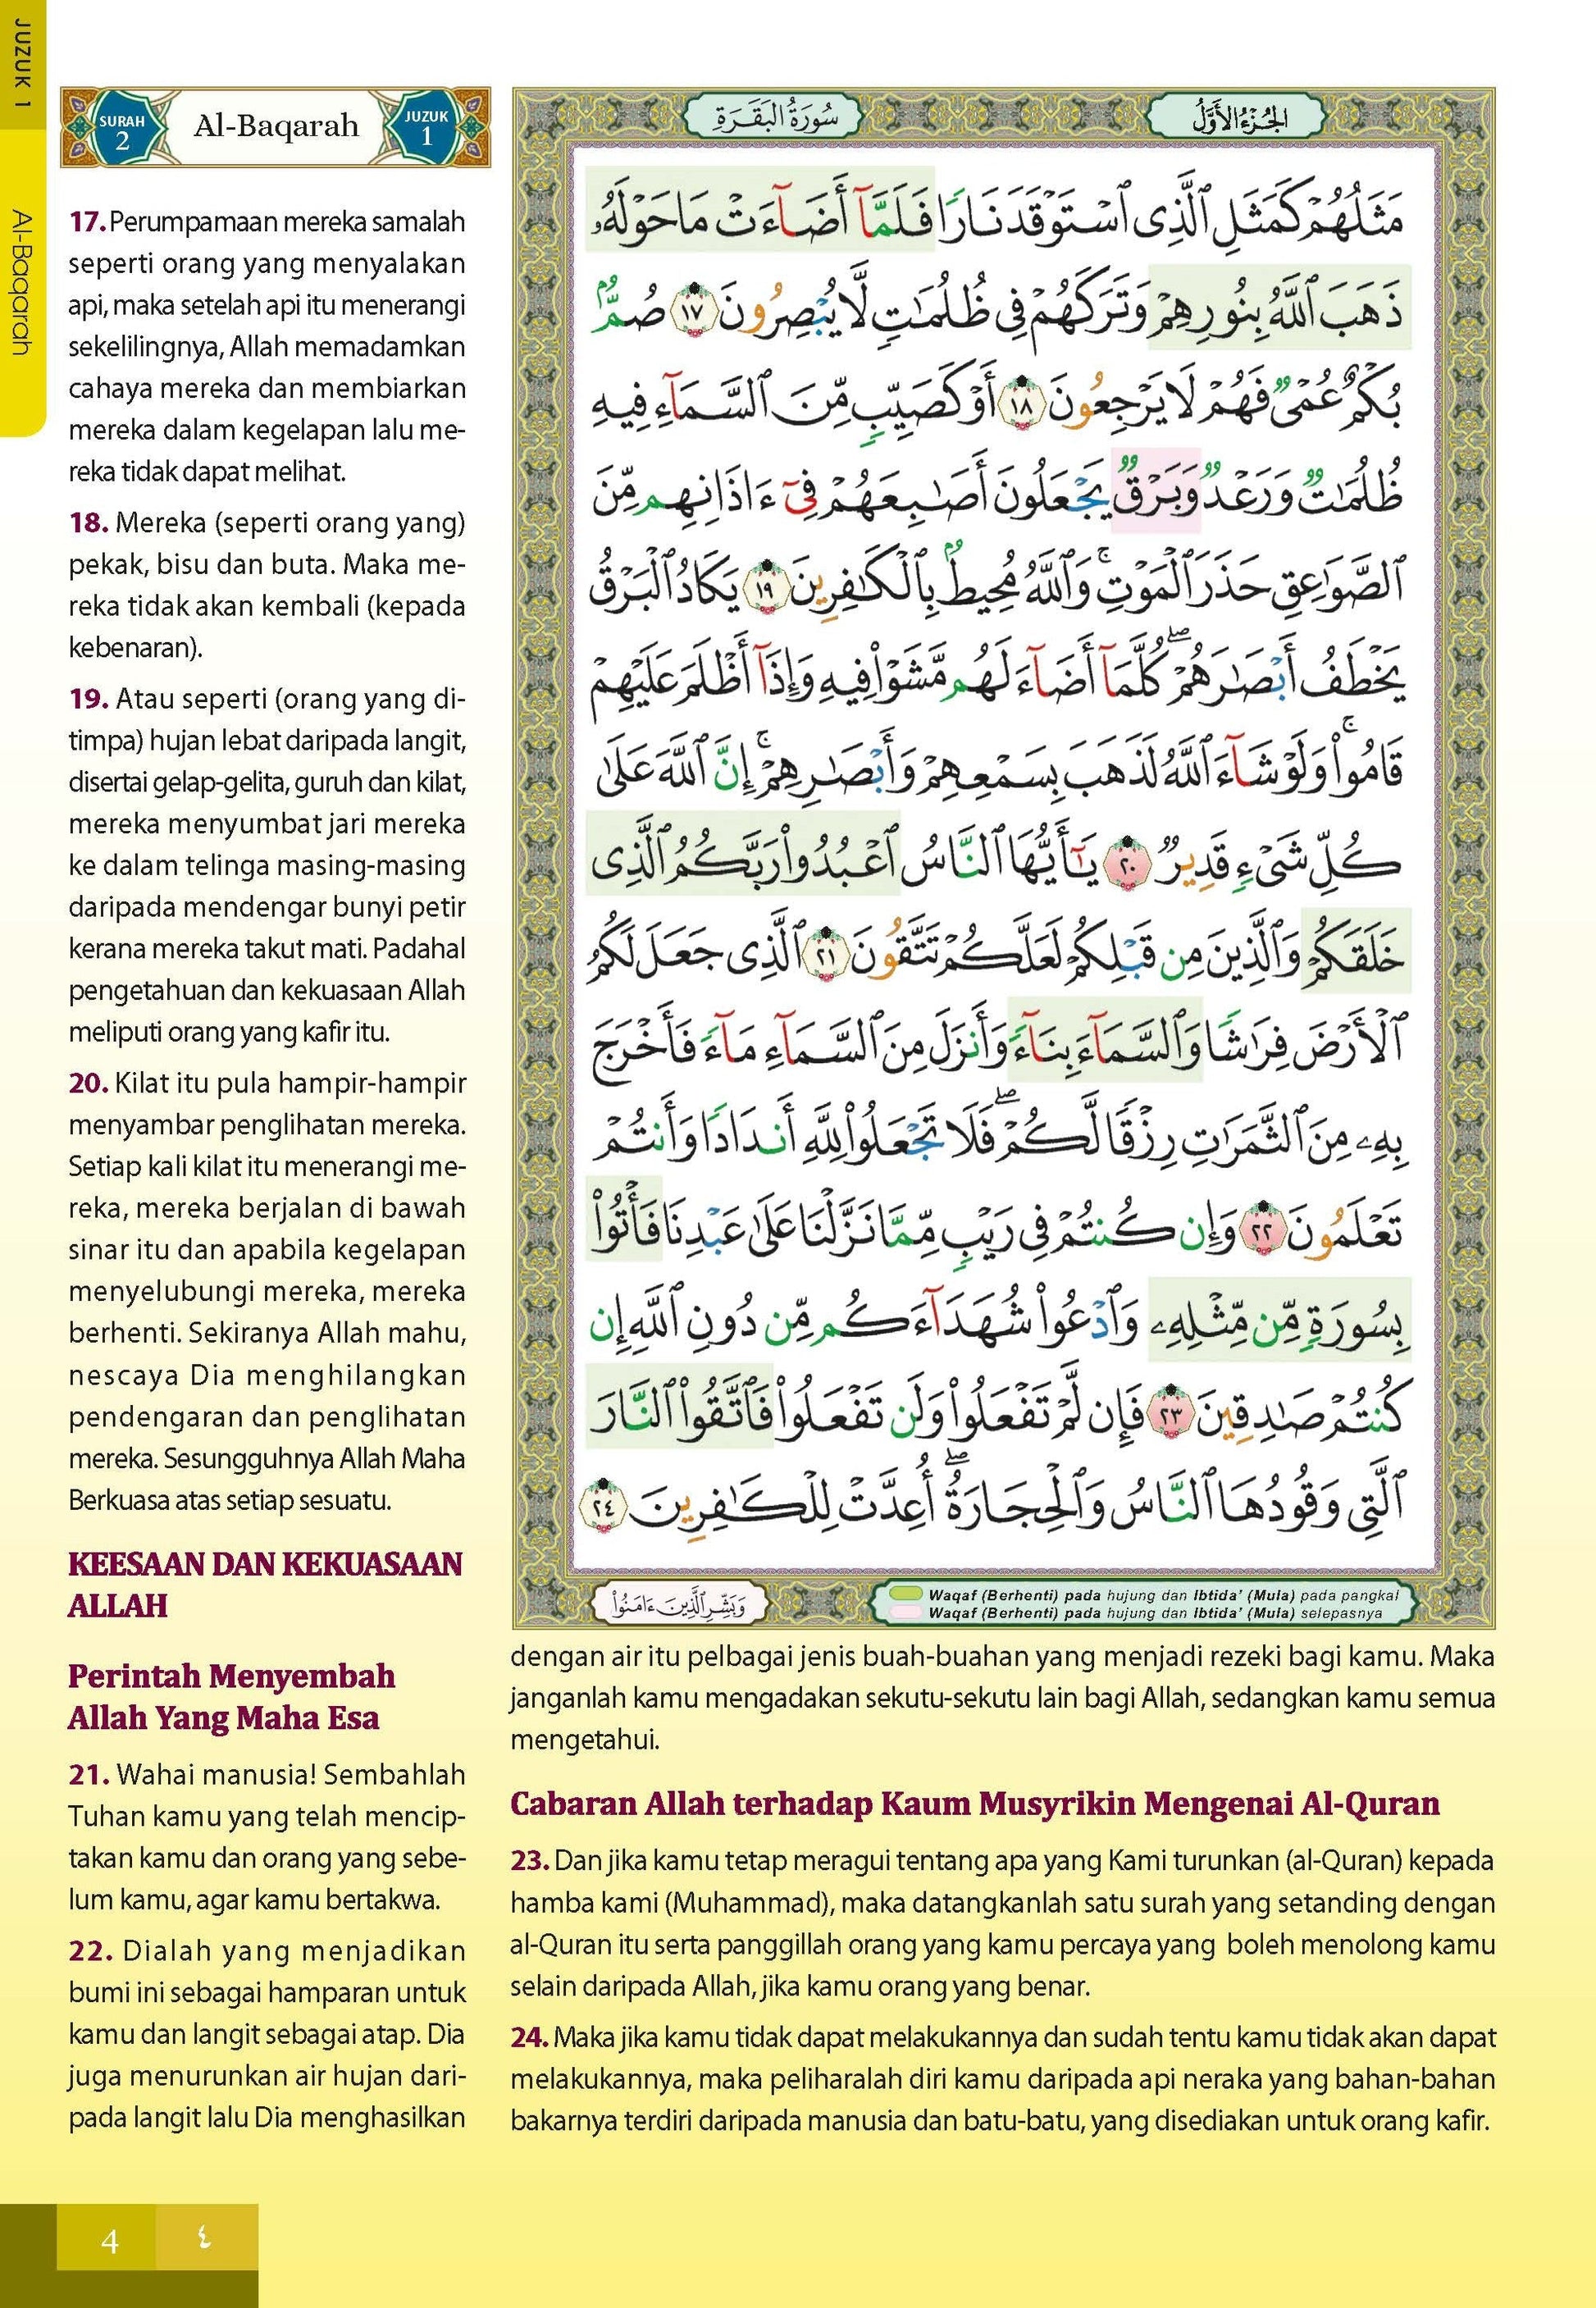 JUZUK 1
Al-Baqarah
SURAH
2
Al-Baqarah
JUZUK
1
17. Perumpamaan mereka samalah
seperti orang yang menyalakan
api, maka setelah api itu menerangi
sekelilingnya, Allah memadamkan
cahaya mereka dan membiarkan
mereka dalam kegelapan lalu me-
reka tidak dapat melihat.
18. Mereka (seperti orang yang)
pekak, bisu dan buta. Maka me-
reka tidak akan kembali (kepada
kebenaran).
19. Atau seperti (orang yang di-
timpa) hujan lebat daripada langit,
disertai gelap-gelita, guruh dan kilat,
mereka menyumbat jari mereka
ke dalam telinga masing-masing
daripada mendengar bunyi petir
kerana mereka takut mati. Padahal
pengetahuan dan kekuasaan Allah
meliputi orang yang kafir itu.
20. Kilat itu pula hampir-hampir
menyambar penglihatan mereka.
Setiap kali kilat itu menerangi me-
reka, mereka berjalan di bawah
sinar itu dan apabila kegelapan
menyelubungi mereka, mereka
berhenti. Sekiranya Allah mahu,
nescaya Dia menghilangkan
pendengaran dan penglihatan
mereka. Sesungguhnya Allah Maha
Berkuasa atas setiap sesuatu.
KEESAAN DAN KEKUASAAN
ALLAH
Perintah Menyembah
Allah Yang Maha Esa
21. Wahai manusia! Sembahlah
Tuhan kamu yang telah mencip-
takan kamu dan orang yang sebe-
lum kamu, agar kamu bertakwa.
22. Dialah yang menjadikan
bumi ini sebagai hamparan untuk
kamu dan langit sebagai atap. Dia
juga menurunkan air hujan dari-
pada langit lalu Dia menghasilkan
الجُزْءُ الأَوَّلُ
سُورَةُ البَقَرَةِ
مَثَلُهُمْ كَمَثَلِ ٱلَّذِى ٱسْتَوْقَدَ نَارًا فَلَمَّآ أَضَآءَتْ مَا حَوْلَهُۥ
ذَهَبَ ٱللَّهُ بِنُورِهِمْ وَتَرَكَهُمْ فِى ظُلُمَٰتٍ لَّا يُبْصِرُونَ ١٧ صُمٌّۢ
بُكْمٌ عُمْىٌ فَهُمْ لَا يَرْجِعُونَ ١٨ أَوْ كَصَيِّبٍ مِّنَ ٱلسَّمَآءِ فِيهِ
ظُلُمَٰتٌ وَرَعْدٌ وَبَرْقٌ يَجْعَلُونَ أَصَٰبِعَهُمْ فِىٓ ءَاذَانِهِم مِّنَ
ٱلصَّوَٰعِقِ حَذَرَ ٱلْمَوْتِ ۚ وَٱللَّهُ مُحِيطٌۢ بِٱلْكَٰفِرِينَ ١٩ يَكَادُ ٱلْبَرْقُ
يَخْطَفُ أَبْصَٰرَهُمْ ۖ كُلَّمَآ أَضَآءَ لَهُم مَّشَوْا۟ فِيهِ وَإِذَآ أَظْلَمَ عَلَيْهِمْ
قَامُوا۟ ۚ وَلَوْ شَآءَ ٱللَّهُ لَذَهَبَ بِسَمْعِهِمْ وَأَبْصَٰرِهِمْ ۚ إِنَّ ٱللَّهَ عَلَىٰ
كُلِّ شَىْءٍ قَدِيرٌ ٢٠ يَٰٓأَيُّهَا ٱلنَّاسُ ٱعْبُدُوا۟ رَبَّكُمُ ٱلَّذِى
خَلَقَكُمْ وَٱلَّذِينَ مِن قَبْلِكُمْ لَعَلَّكُمْ تَتَّقُونَ ٢١ ٱلَّذِى جَعَلَ لَكُمُ
ٱلْأَرْضَ فِرَٰشًا وَٱلسَّمَآءَ بِنَآءً وَأَنزَلَ مِنَ ٱلسَّمَآءِ مَآءً فَأَخْرَجَ
بِهِۦ مِنَ ٱلثَّمَرَٰتِ رِزْقًا لَّكُمْ ۖ فَلَا تَجْعَلُوا۟ لِلَّهِ أَندَادًا وَأَنتُمْ
تَعْلَمُونَ ٢٢ وَإِن كُنتُمْ فِى رَيْبٍ مِّمَّا نَزَّلْنَا عَلَىٰ عَبْدِنَا فَأْتُوا۟
بِسُورَةٍ مِّن مِّثْلِهِۦ وَٱدْعُوا۟ شُهَدَآءَكُم مِّن دُونِ ٱللَّهِ إِن
كُنتُمْ صَٰدِقِينَ ٢٣ فَإِن لَّمْ تَفْعَلُوا۟ وَلَن تَفْعَلُوا۟ فَٱتَّقُوا۟ ٱلنَّارَ
ٱلَّتِى وَقُودُهَا ٱلنَّاسُ وَٱلْحِجَارَةُ ۖ أُعِدَّتْ لِلْكَٰفِرِينَ ٢٤
وَبَشِّرِ ٱلَّذِينَ ءَامَنُوا۟
Waqaf (Berhenti) pada hujung dan Ibtida' (Mula) pada pangkal
Waqaf (Berhenti) pada hujung dan Ibtida' (Mula) selepasnya
dengan air itu pelbagai jenis buah-buahan yang menjadi rezeki bagi kamu. Maka
janganlah kamu mengadakan sekutu-sekutu lain bagi Allah, sedangkan kamu semua
mengetahui.
Cabaran Allah terhadap Kaum Musyrikin Mengenai Al-Quran
23. Dan jika kamu tetap meragui tentang apa yang Kami turunkan (al-Quran) kepada
hamba kami (Muhammad), maka datangkanlah satu surah yang setanding dengan
al-Quran itu serta panggillah orang yang kamu percaya yang boleh menolong kamu
selain daripada Allah, jika kamu orang yang benar.
24. Maka jika kamu tidak dapat melakukannya dan sudah tentu kamu tidak akan dapat
melakukannya, maka peliharalah diri kamu daripada api neraka yang bahan-bahan
bakarnya terdiri daripada manusia dan batu-batu, yang disediakan untuk orang kafir.
4
٤